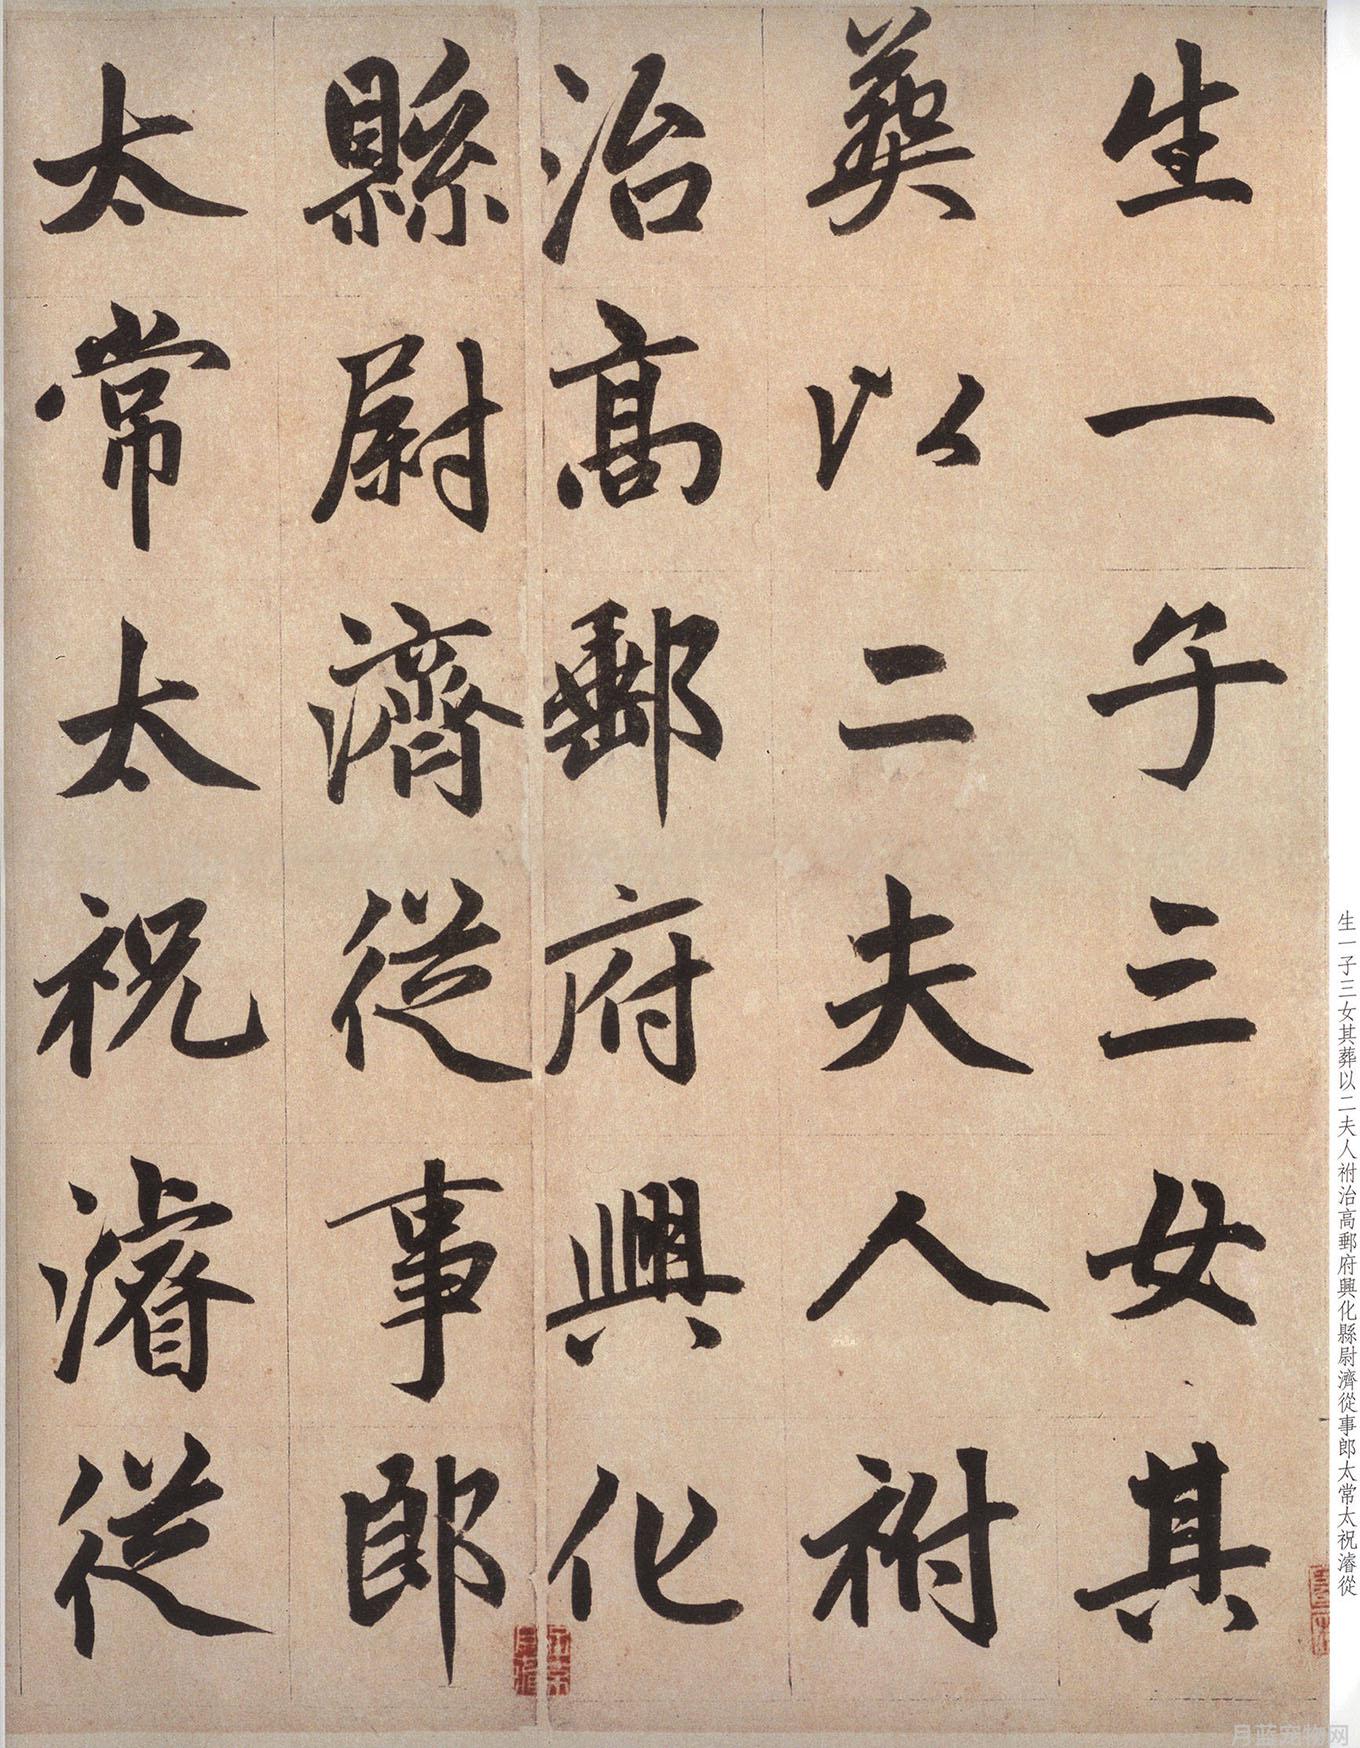 生一子三女其
葬以二夫人祔
治高郵府興化
縣尉濟從事郎
太常太祝濬從
生一子三女其葬以二夫人祔治高郵府興化縣尉濟從事郎太常太祝濬從
月蓝宠物网